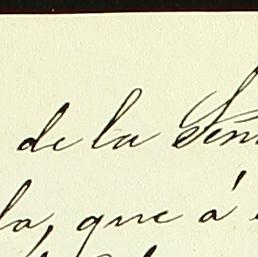 de la Sen
la, que á